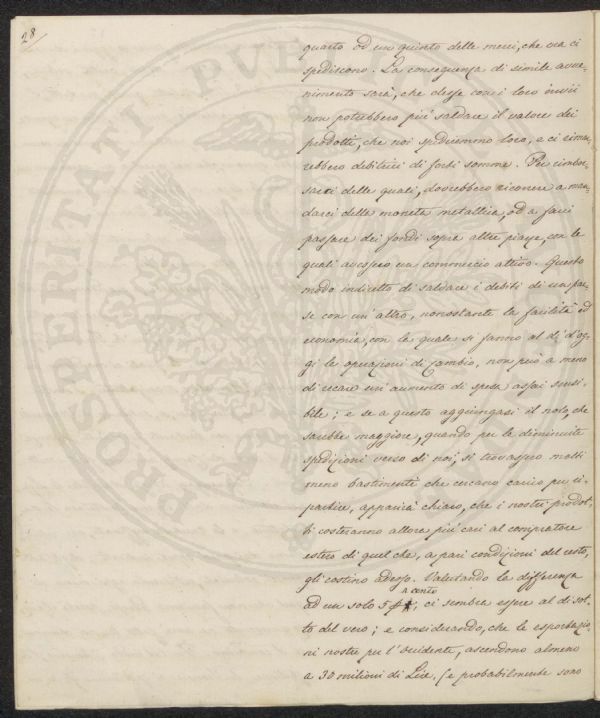 28/
quarto od un quinto delle merci, che ora ci
spediscono. La conseguenza di simile avve-
nimento sarà, che desse con i loro invii
non potrebbero più saldare il valore dei
prodotti, che noi spediremmo loro, e ci rimar-
rebbero debitrici di forti somme. Per rimbor-
sarci delle quali, dovrebbero ricorrere a man-
darci della moneta metallica, od a farci
passare dei fondi sopra altre piazze, con le
quali avessero un commercio attivo. Questo
modo indiretto di saldare i debiti di un pae-
se con un'altro, nonostante la facilità ed
economia, con la quale si fanno al dì d'og-
gi le operazioni di Cambio, non può a meno
di recare un'aumento di spesa assai sensi-
bile; e se a questo aggiungasi il nolo, che
sarebbe maggiore, quando per le diminuite
spedizioni verso di noi, si trovassero molti
meno bastimenti che cercano carico per ri-
partire, apparirà chiaro, che i nostri prodot-
ti costeranno allora più cari al compratore
estero di quel che, a pari condizioni del resto,
gli costino adesso. Valutando la differenza
a cento
ad un solo 5 p, ci sembra essere al di sot-
to del vero; e considerando, che le esportazio-
ni nostre per l'Occidente, ascendono almeno
a 30 milioni di Lire, (e probabilmente sono
PROSPERITATI PVB